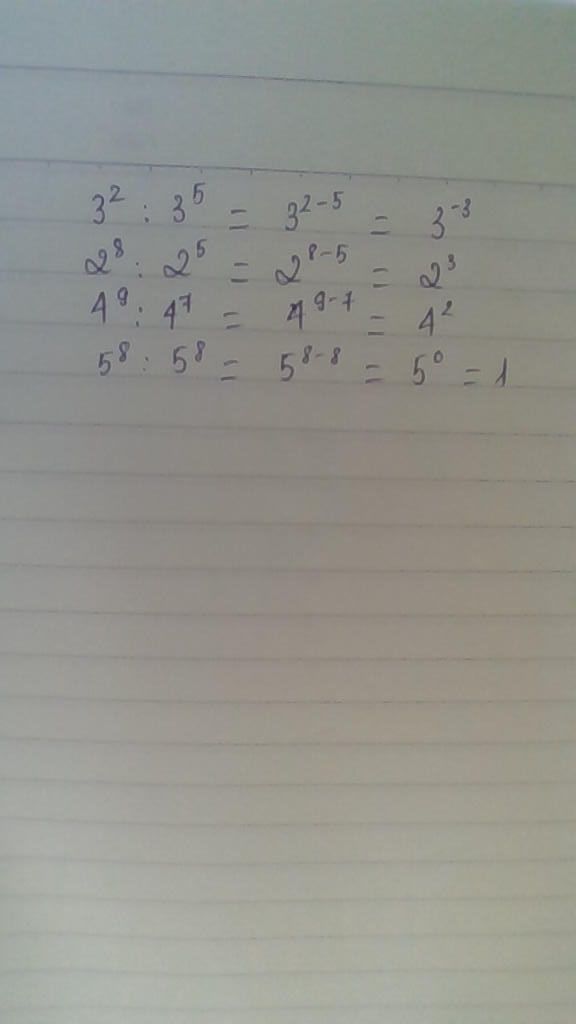 3² : 3⁵ = 3²⁻⁵ = 3⁻³
2⁸ : 2⁵ = 2⁸⁻⁵ = 2³
4⁹ : 4⁷ = 4⁹⁻⁷ = 4²
5⁸ : 5⁸ = 5⁸⁻⁸ = 5⁰ = 1